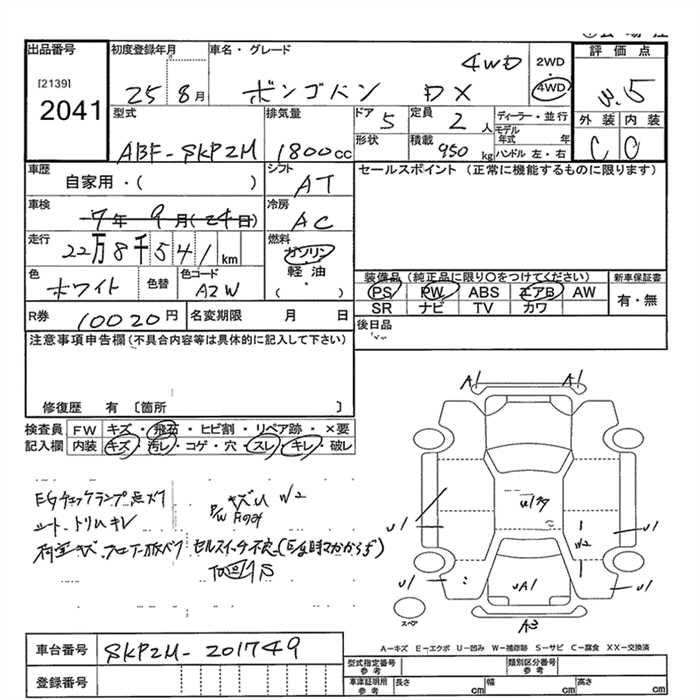 出品番号
[2139]
2041
初度登録年月
25 8月
車名・グレード
ボンゴバン DX 4WD
2WD
・
4WD
評価点
3.5
外装 内装
C C
型式
ABF-SKP2M
排気量
1800cc
ドア 5
形状
定員 2人
積載 950kg
ディーラー・並行
モデル年式 年
ハンドル 左・右
車歴
自家用・( )
シフト
AT
セールスポイント (正常に機能するものに限ります)
車検
7年 9月(24日)
冷房
AC
走行
22万8千541km
燃料
ガソリン
・
軽油
( ・ )
色
ホワイト
色替
色コード
A2W
装備品(純正品に限り○をつけてください)
PS PW ABS エアB AW
SR ナビ TV カワ
新車保証書
有・無
R券 10020円
名変期限 月 日
後日品
注意事項申告欄(不具合内容等は具体的に記入して下さい)
修復歴 有 〔箇所 〕
検査員記入欄
FW キズ・飛石・ヒビ割・リペア跡・×要
内装 キズ・汚レ・コゲ・穴・スレ・キレ・破レ
EGチェックランプ点灯
キズU W2
シート、トリムキレ
荷室キズ
セルスイッチ不良(EG時々かからず)
A1 A1
U1
W2
U1
U1
UA1
U1
A3
スペア
A-キズ E-エクボ U-凹み W-補修跡 S-サビ C-腐食 XX-交換済
車台番号
SKP2M-201749
登録番号
型式指定番号
参考
類別区分番号
参考
車庫証明用
参考
長さ cm
幅 cm
高さ cm